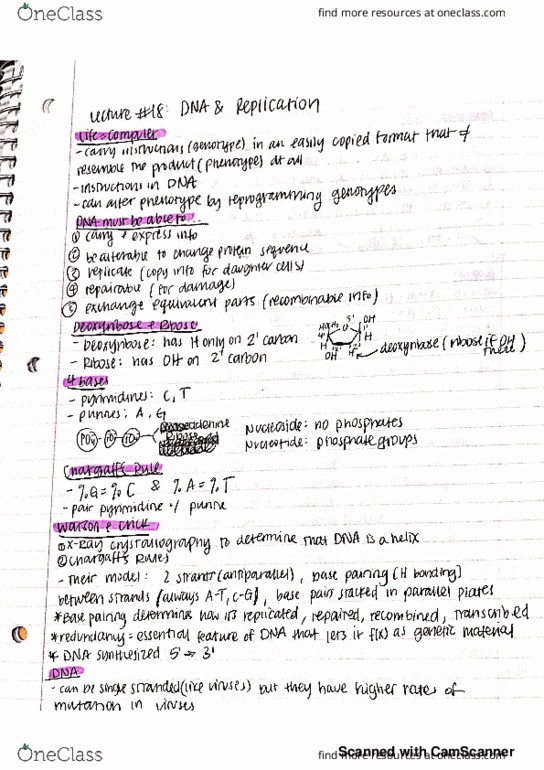 OneClass
find more resources at oneclass.com
Lecture #18: DNA & Replication
Life = Computer
- carry instructions (genotype) in an easily copied format that ≠
resemble the product (phenotypes) at all
- instructions in DNA
- can alter phenotype by reprogramming genotypes
DNA must be able to...
① carry & express info
② be alterable to change protein sequence
③ replicate (copy info for daughter cells)
④ repairable (for damage)
⑤ exchange equivalent parts (recombinable info)
Deoxyribose & Ribose
- Deoxyribose: has H only on 2' carbon
- Ribose: has OH on 2' carbon
5' OH
deoxyribose (ribose if OH
there)
4 bases
- pyrimidines: C, T
- purines: A, G
PO4 PO4 PO4
Nucleoside: no phosphates
Nucleotide: phosphate groups
Chargaff's Rule
- % G = % C & % A = % T
- pair pyrimidine w/ purine
Watson & Crick
① X-Ray crystallography to determine that DNA is a helix
② Chargaff's Rules
- Their model: 2 strands (antiparallel), base pairing (H bonding)
between strands (always A-T, C-G), base pairs stacked in parallel plates
* Base pairing determines how it's replicated, repaired, recombined, transcribed
* redundancy = essential feature of DNA that lets it f(x) as genetic material
* DNA synthesized 5' → 3'
DNA
- can be single stranded (like viruses) but they have higher rates of
mutation in viruses
OneClass
find more resources at oneclass.com
Scanned with CamScanner